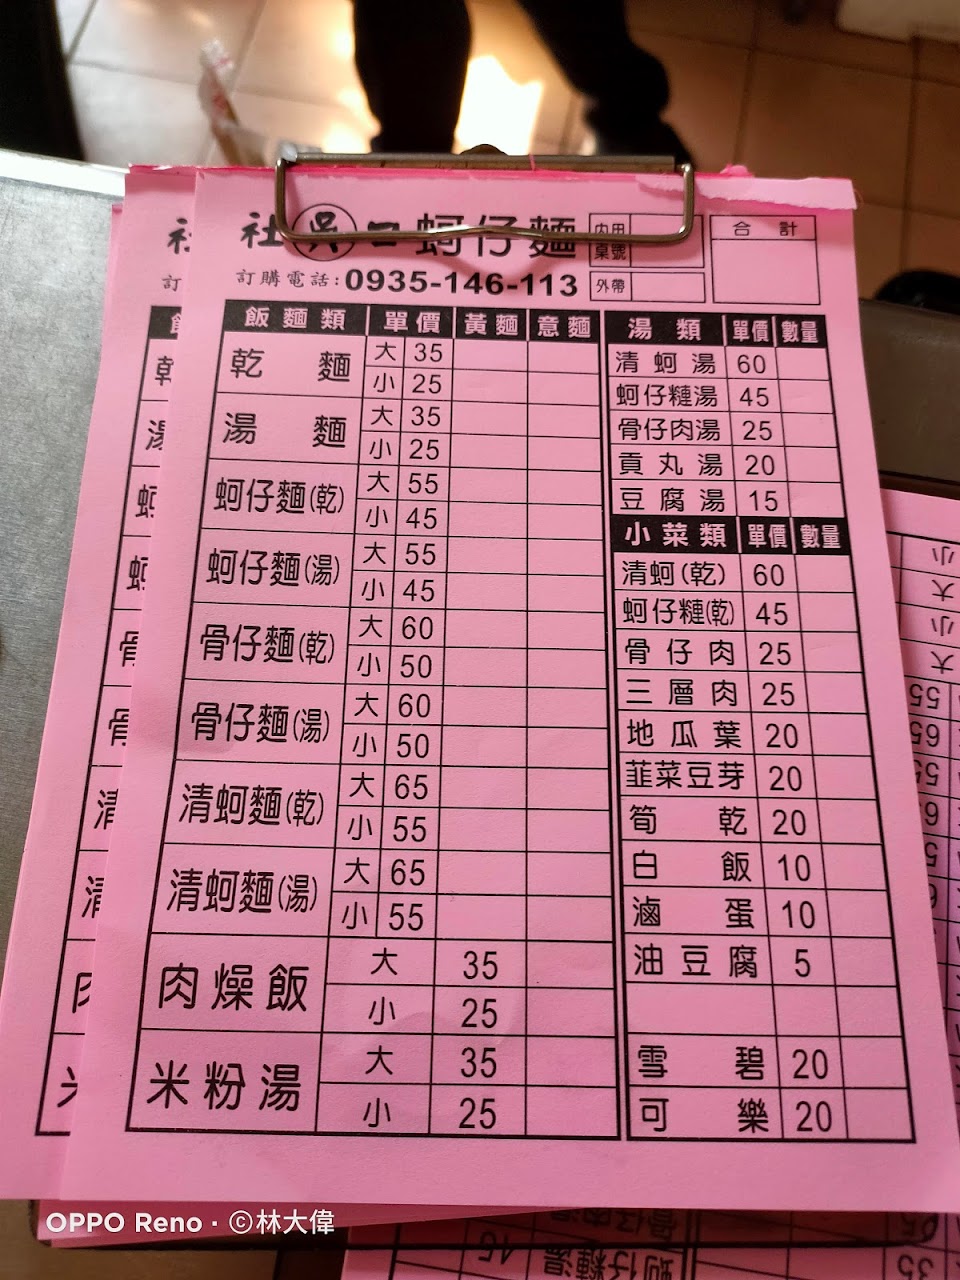 社 吳 口 蚵仔麵
訂購電話:0935-146-113
內用
桌號
外帶
合計
飯麵類 單價 黃麵 意麵
乾麵 大 35
小 25
湯麵 大 35
小 25
蚵仔麵(乾) 大 55
小 45
蚵仔麵(湯) 大 55
小 45
骨仔麵(乾) 大 60
小 50
骨仔麵(湯) 大 60
小 50
清蚵麵(乾) 大 65
小 55
清蚵麵(湯) 大 65
小 55
肉燥飯 大 35
小 25
米粉湯 大 35
小 25
湯類 單價 數量
清蚵湯 60
蚵仔𩛩湯 45
骨仔肉湯 25
貢丸湯 20
豆腐湯 15
小菜類 單價 數量
清蚵(乾) 60
蚵仔𩛩(乾) 45
骨仔肉 25
三層肉 25
地瓜葉 20
韮菜豆芽 20
筍乾 20
白飯 10
滷蛋 10
油豆腐 5
雪碧 20
可樂 20
OPPO Reno · ©林大偉